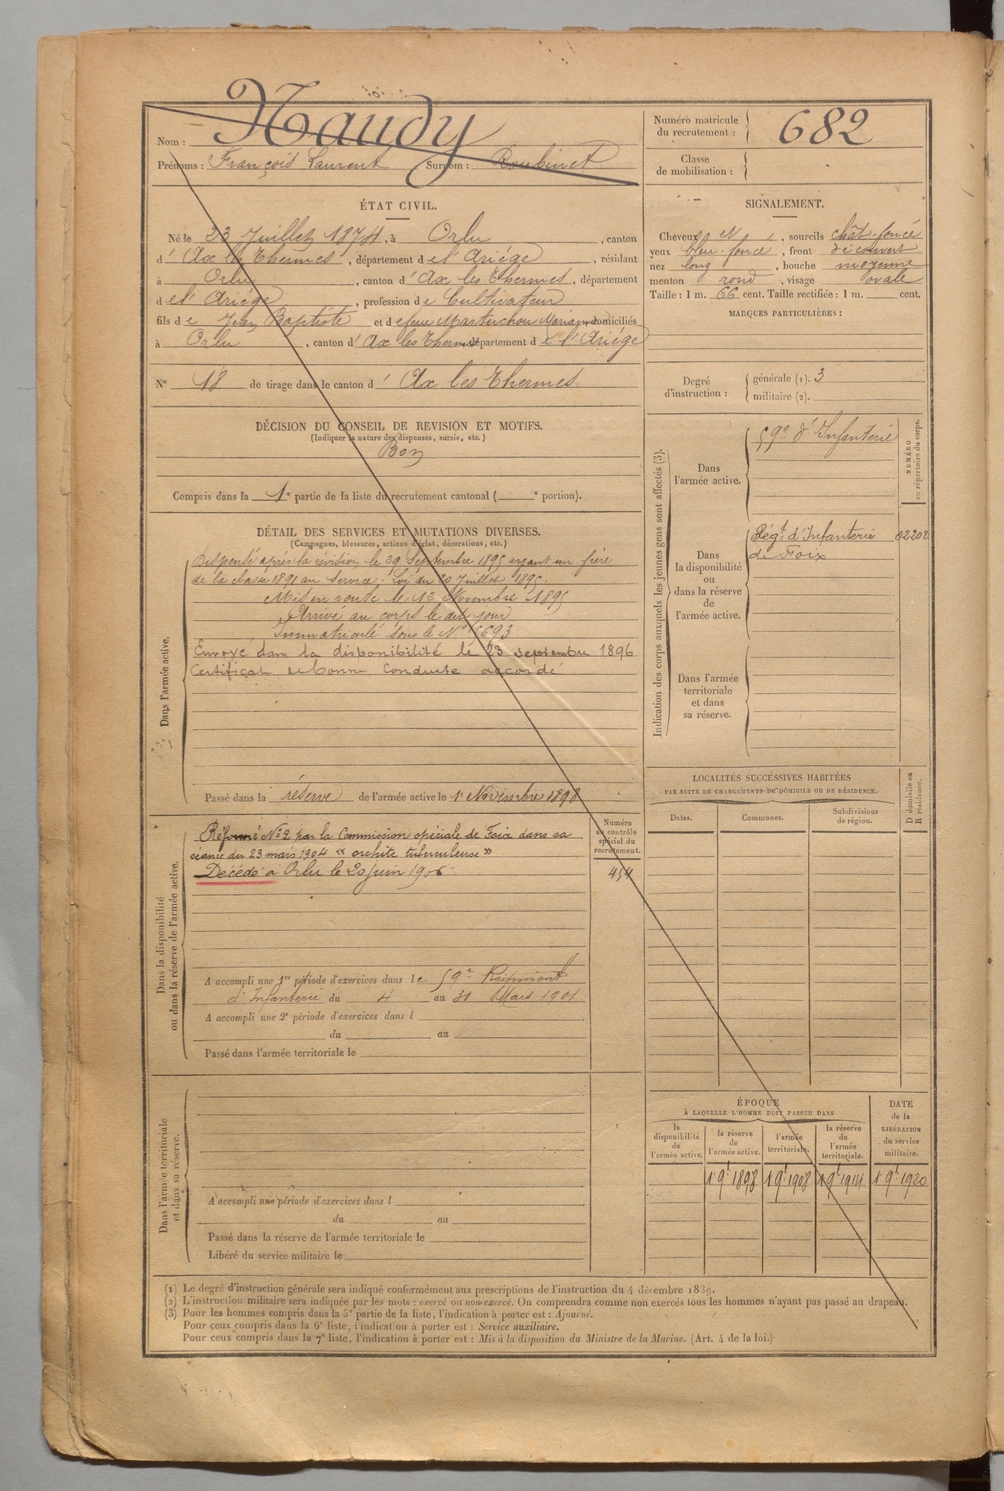 Nom : Naudy
Prénoms : François Laurent Surnom : Roubinet
Numéro matricule du recrutement : 682
Classe de mobilisation :
ÉTAT CIVIL.
Né le 23 Juillet 1874, à Orlu, canton
d' Ax les Thermes, département de l'Ariége, résidant
à Orlu, canton d' Ax les Thermes, département
de l' Ariége, profession de Cultivateur
fils de Jean Baptiste et de feue Marianne domiciliés
à Orlu, canton d' Ax les Thermes département de l'Ariége
N° 18 de tirage dans le canton d' Ax les Thermes
SIGNALEMENT.
Cheveux et, sourcils chât. foncé
yeux bleu foncé, front découvert
nez long, bouche moyenne
menton rond, visage ovale
Taille : 1 m. 66 cent. Taille rectifiée : 1 m. cent.
MARQUES PARTICULIÈRES :
Degré d'instruction : générale (1). 3
militaire (2).
DÉCISION DU CONSEIL DE REVISION ET MOTIFS.
(Indiquer la nature des dispenses, sursis, etc.)
Bon
Compris dans la 1e partie de la liste du recrutement cantonal ( e portion).
DÉTAIL DES SERVICES ET MUTATIONS DIVERSES.
(Campagnes, blessures, actions d'éclat, décorations, etc.)
Dans l'armée active.
Dispensé après la révision le 29 Septembre 1895 ayant un frère
de la classe 1891 au service. Loi du 20 Juillet 1895.
Mis en route le 13 Novembre 1895
Arrivé au corps le dit jour
Immatriculé sous le N° 5693
Envoyé dans la disponibilité le 23 septembre 1896
Certificat de bonne Conduite accordé
Passé dans la réserve de l'armée active le 1er Novembre 1898
Dans la disponibilité ou dans la réserve de l'armée active.
Numéro au contrôle spécial du recrutement.
Réformé N° 2 par la Commission spéciale de Foix dans sa
séance du 23 mars 1904 « orchite tuberculeuse »
Décédé à Orlu le 20 Juin 1906
454
A accompli une 1re période d'exercices dans le 59e Régiment
d'Infanterie du 4 au 31 Mars 1901
A accompli une 2e période d'exercices dans l
du au
Passé dans l'armée territoriale le
Dans l'armée territoriale et dans sa réserve.
A accompli une période d'exercices dans l
du au
Passé dans la réserve de l'armée territoriale le
Libéré du service militaire le
Indication des corps auxquels les jeunes gens sont affectés (3).
NUMÉRO au répertoire du corps.
Dans l'armée active.
59e d'Infanterie
Dans la disponibilité ou dans la réserve de l'armée active.
Régt d'Infanterie
de Foix
02202
Dans l'armée territoriale et dans sa réserve.
LOCALITÉS SUCCESSIVES HABITÉES
PAR SUITE DE CHANGEMENTS DE DOMICILE OU DE RÉSIDENCE.
Dates. Communes. Subdivisions de région. D domicile ou R résidence.
ÉPOQUE
À LAQUELLE L'HOMME DOIT PASSER DANS
la disponibilité de l'armée active. la réserve de l'armée active. l'armée territoriale. la réserve de l'armée territoriale.
DATE de la LIBÉRATION du service militaire.
1 9bre 1898 1 9bre 1908 1 9bre 1914 1 9bre 1920
(1) Le degré d'instruction générale sera indiqué conformément aux prescriptions de l'instruction du 4 décembre 1889.
(2) L'instruction militaire sera indiquée par les mots : exercé ou non-exercé. On comprendra comme non exercés tous les hommes n'ayant pas passé au drapeau.
(3) Pour les hommes compris dans la 5e partie de la liste, l'indication à porter est : Ajourné.
Pour ceux compris dans la 6e liste, l'indication à porter est : Service auxiliaire.
Pour ceux compris dans la 7e liste, l'indication à porter est : Mis à la disposition du Ministre de la Marine. (Art. 4 de la loi.)